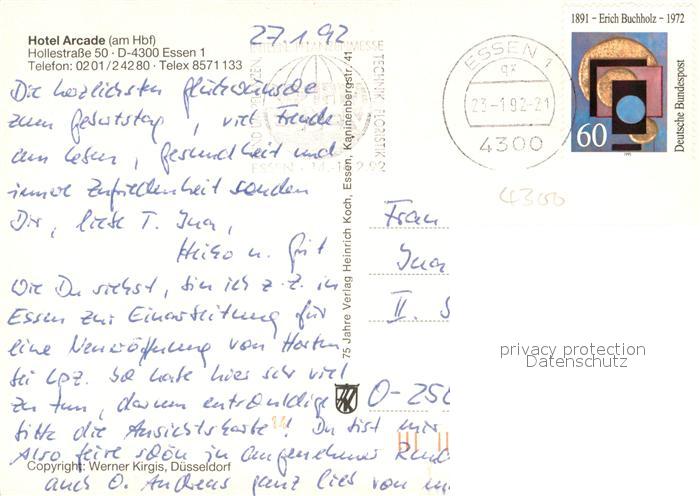 27.1.92
Hotel Arcade (am Hbf)
Hollestraße 50 · D-4300 Essen 1
Telefon: 02 01 / 2 42 80 · Telex 8571 133
Die herzlichsten Glückwünsche
zum Geburtstag, viel Freude
am Leben, Gesundheit und
immer Zufriedenheit senden
Dir, liebe T. Ina,
Heiko u. Grit
Wie Du siehst, bin ich z. Z. in
Essen zur Einarbeitung für
eine Neueröffnung von
bei Lpz. So habe hier sehr viel
zu tun, darum entschuldige
bitte die Ansichtskarte! Du bist mir
Also feire schön in angenehmer
auch O. Andreas ganz lieb von
Copyright: Werner Kirgis, Düsseldorf
75 Jahre Verlag Heinrich Koch, Essen, Kaninenbergstr. 41
MESSE
TECHNIK TOURISTIK
ESSEN
ESSEN 1
gx
23-1.92-21
4300
1891 – Erich Buchholz – 1972
60
Deutsche Bundespost
4300
Frau
Ina
II. S
O-25
privacy protection
Datenschutz